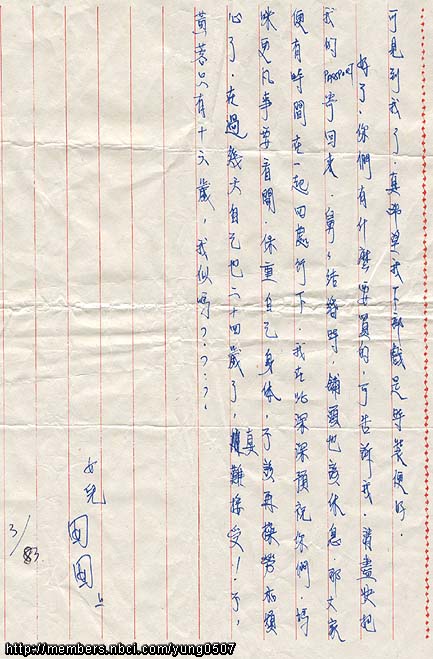 可見到我了．真希望我下部戲是時裝便好．
好了．你們有什麽要買的，可告訴我．請盡快把
我的PASSPORT寄回來．舅舅結婚時，舖頭也該休息那大家
便有時間在一起四處行下．我在此深深預祝你們．媽
咪更凡事要看開，保重自己身体，不該再操勞煩
心了．在過幾天自己也二十四歲了，真難接受！不，
黃蓉只有十六歲，我似嗎？？？．
女兒
囡囡上
3/83.
http://members.nbci.com/yung0507